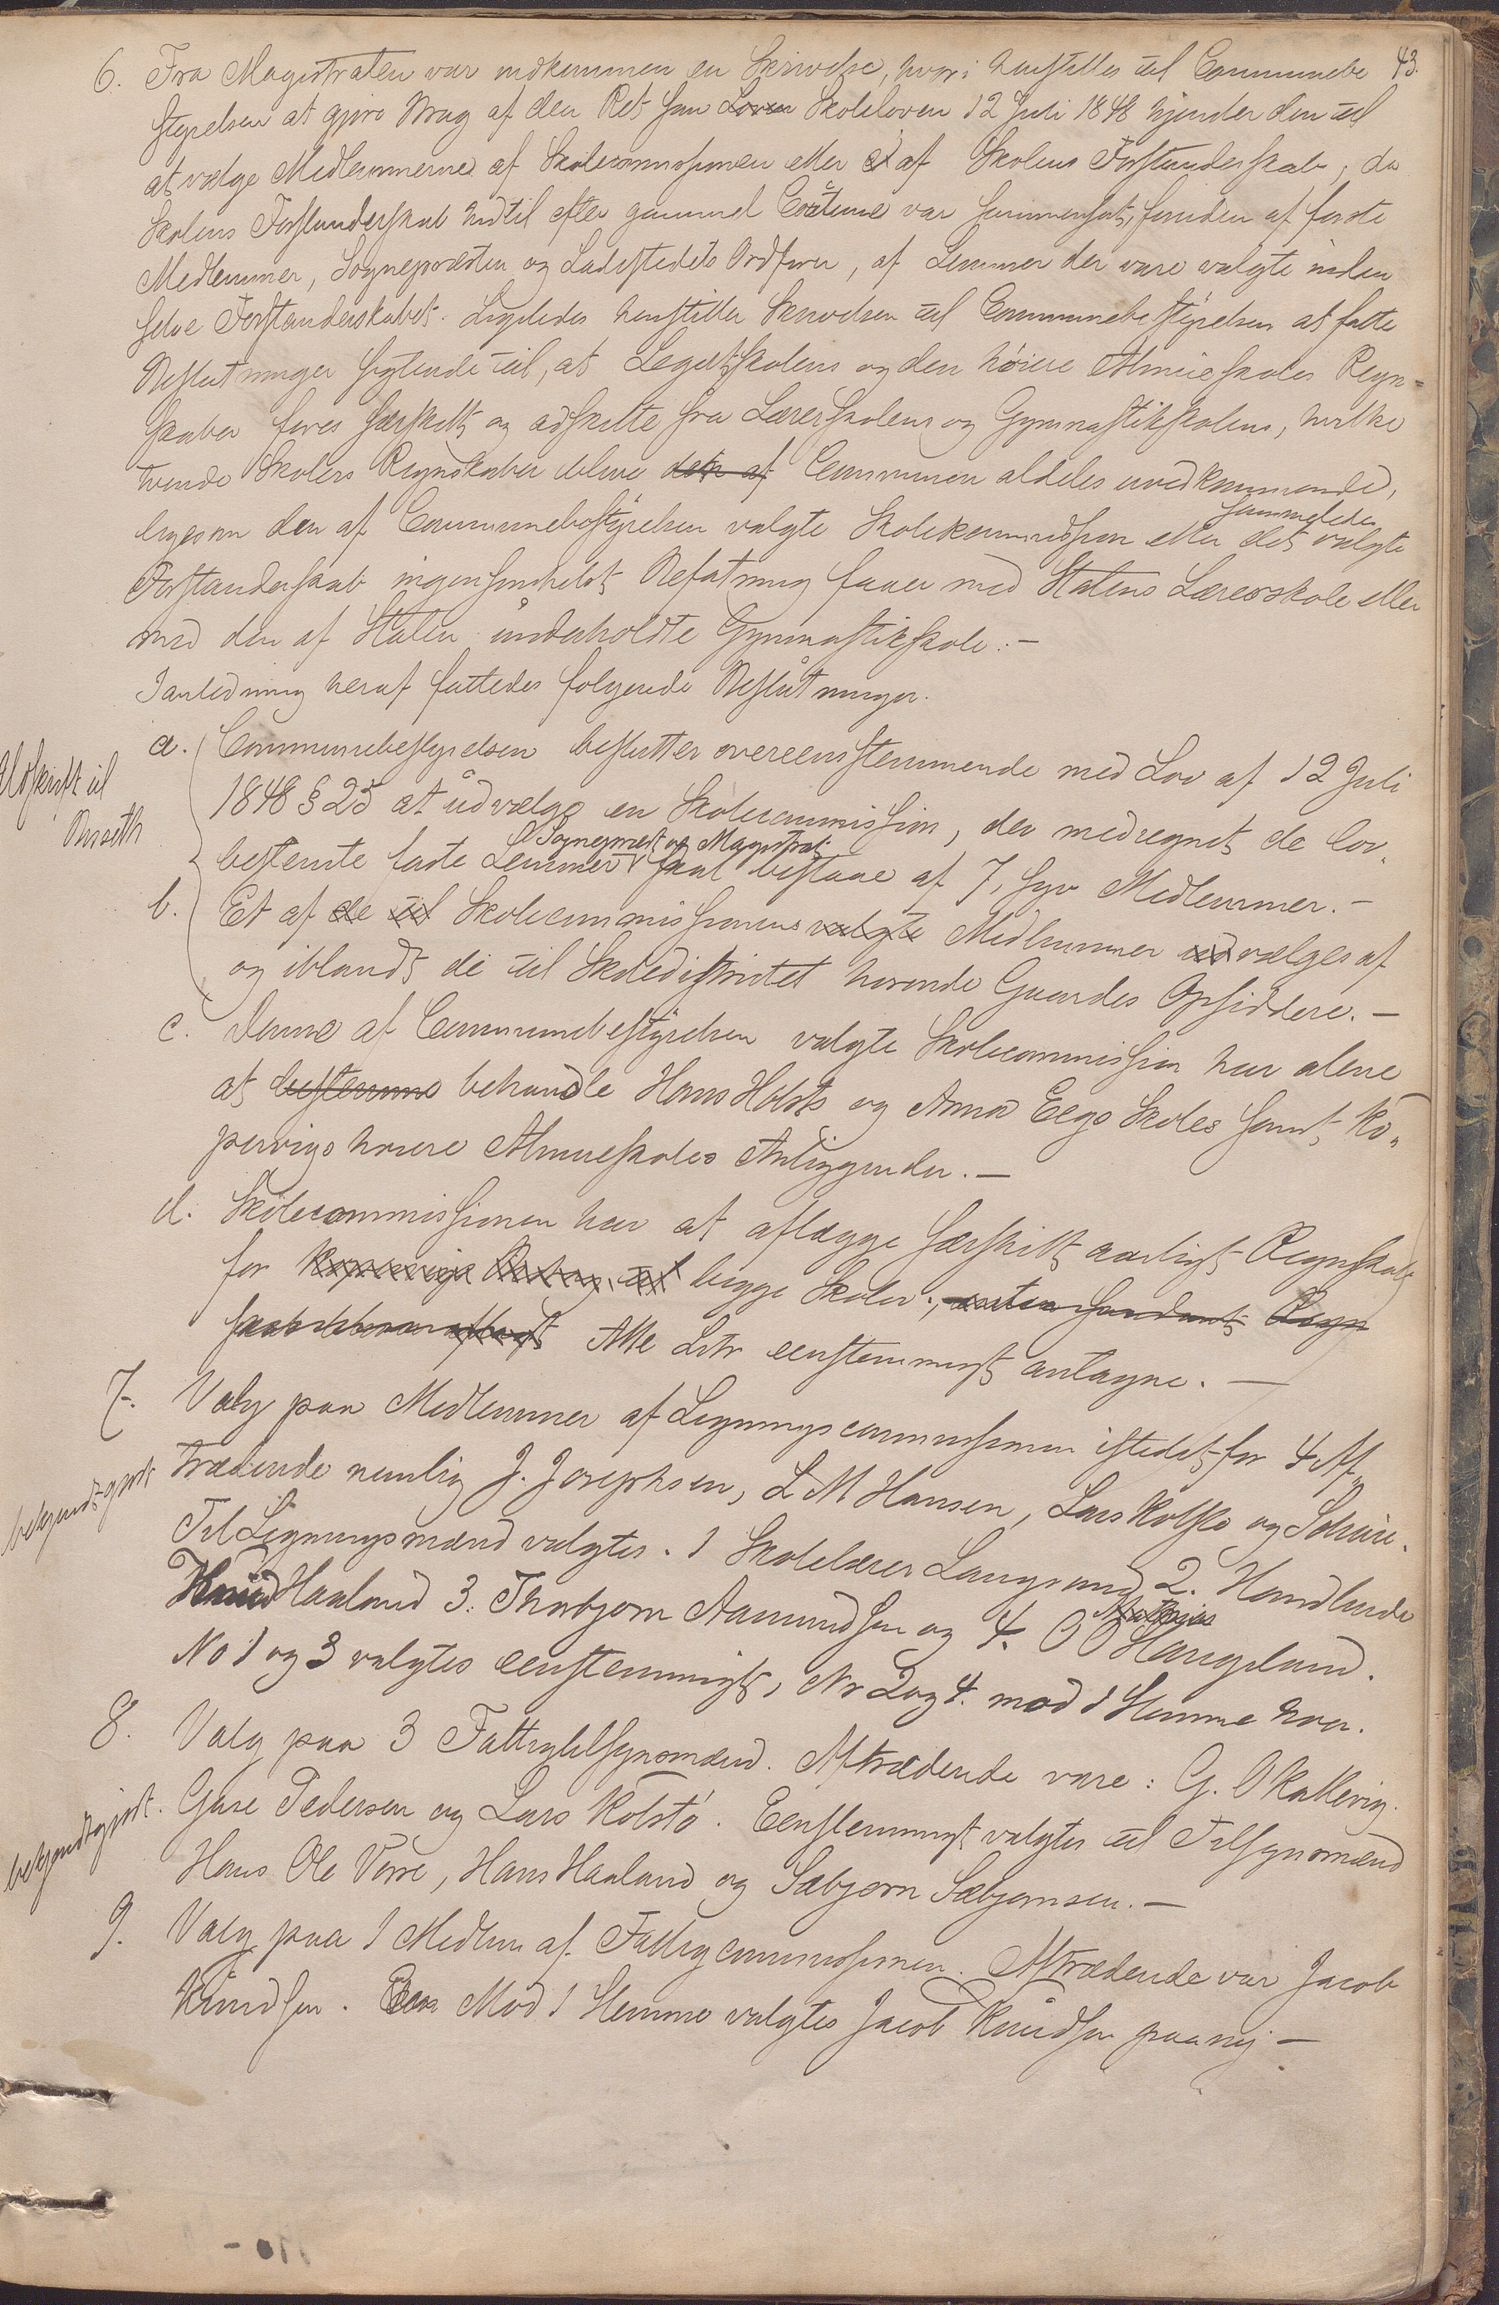 43.
6. Fra Magistraten var indkommen en Skrivelse, hvori henstilles til Communebe
styrelsen at gjøre Brug af den Ret som Loven Skoleloven 12 Juli 1848 hjemler den til
at vælge Medlemmerne af Skolecommissionen eller af Skolens Forstanderskab, da
Skolens Forstanderskab indtil efter gammel Coutume var sammensat, foruden af faste
Medlemmer, Sognepresten og Ladestedets Ordfører, af Lemmer der vare valgte inden
selve Forstanderskabet. Ligeledes henstiller Skrivelsen til Communebestyrelsen at fatte
Beslutninger sigtende til, at Legatskolens og den høiere Almueskoles Regn=
skaber føres særskilt og adskilte fra Lærerskolens og Gymnastikskolens, hvilke
tvende Skolers Regnskaber blive den af Communen aldeles uvedkommende,
ligesom den af Communebestyrelsen valgte Skolekommission eller det sammeledes valgte
Forstanderskab ingensomhelst Befatning faaer med Statens Lærerskole eller
med den af Staten underholdte Gymnastikskole. —
I anledning heraf fattedes følgende Beslutninger.
a. Communebestyrelsen beslutter overeensstemmende med Lov af 12 Juli
Udskrift til
1848 § 25 at udvælge en Skolecommission, der medregnet de lov„
bestemte faste Lemmer Sogneprest og Magistrat skal bestaae af 7, syv Medlemmer. —
b. Et af de til Skolecommissionens valgte Medlemmer udvælges af
og iblandt de til Skoledistrictet hørende Gaardes Opsiddere. —
c. Denne af Communebestyrelsen valgte Skolecommission har alene
at bestemme behandle Hans Holsts og Anna Eegs Skoles samt Ko„
pervigs høiere Almueskoles Anliggender. —
d. Skolecommissionen har at aflægge særskilt aarligt Regnskab
for begge Skoler., Regn
Alle Litr eenstemmigt antagne. —
7. Valg paa Medlemmer af Ligningscommissionen istedetfor 4 Af„
bekjendtgjort
trædende nemlig J. Josephsen, L M Hansen, Lars Kolstø og
Til Ligningsmænd valgtes. 1 Skolelærer Langeland 2. Handlende
Knud Haaland 3. Thorbjørn Aamundsen og 4. O O Haugeland.
No 1 og 3 valgtes eenstemmigt, Nr 2 og 4. mod 1 Stemme hver.
8. Valg paa 3 Fattigtilsynsmænd. Aftrædende vare: G. O Kallevig.
bekjendtgjort.
Gase Pedersen og Lars Kolstø. Eenstemmigt valgtes til Tilsynsmænd
Hans Ole Vorre, Hans Haaland og Sæbjørn Sæbjørnsen. —
9. Valg paa 1 Medlem af Fattigcommissionen. Aftrædende var Jacob
Knudsen. Mod 1 Stemme valgtes Jacob Knudsen paany —